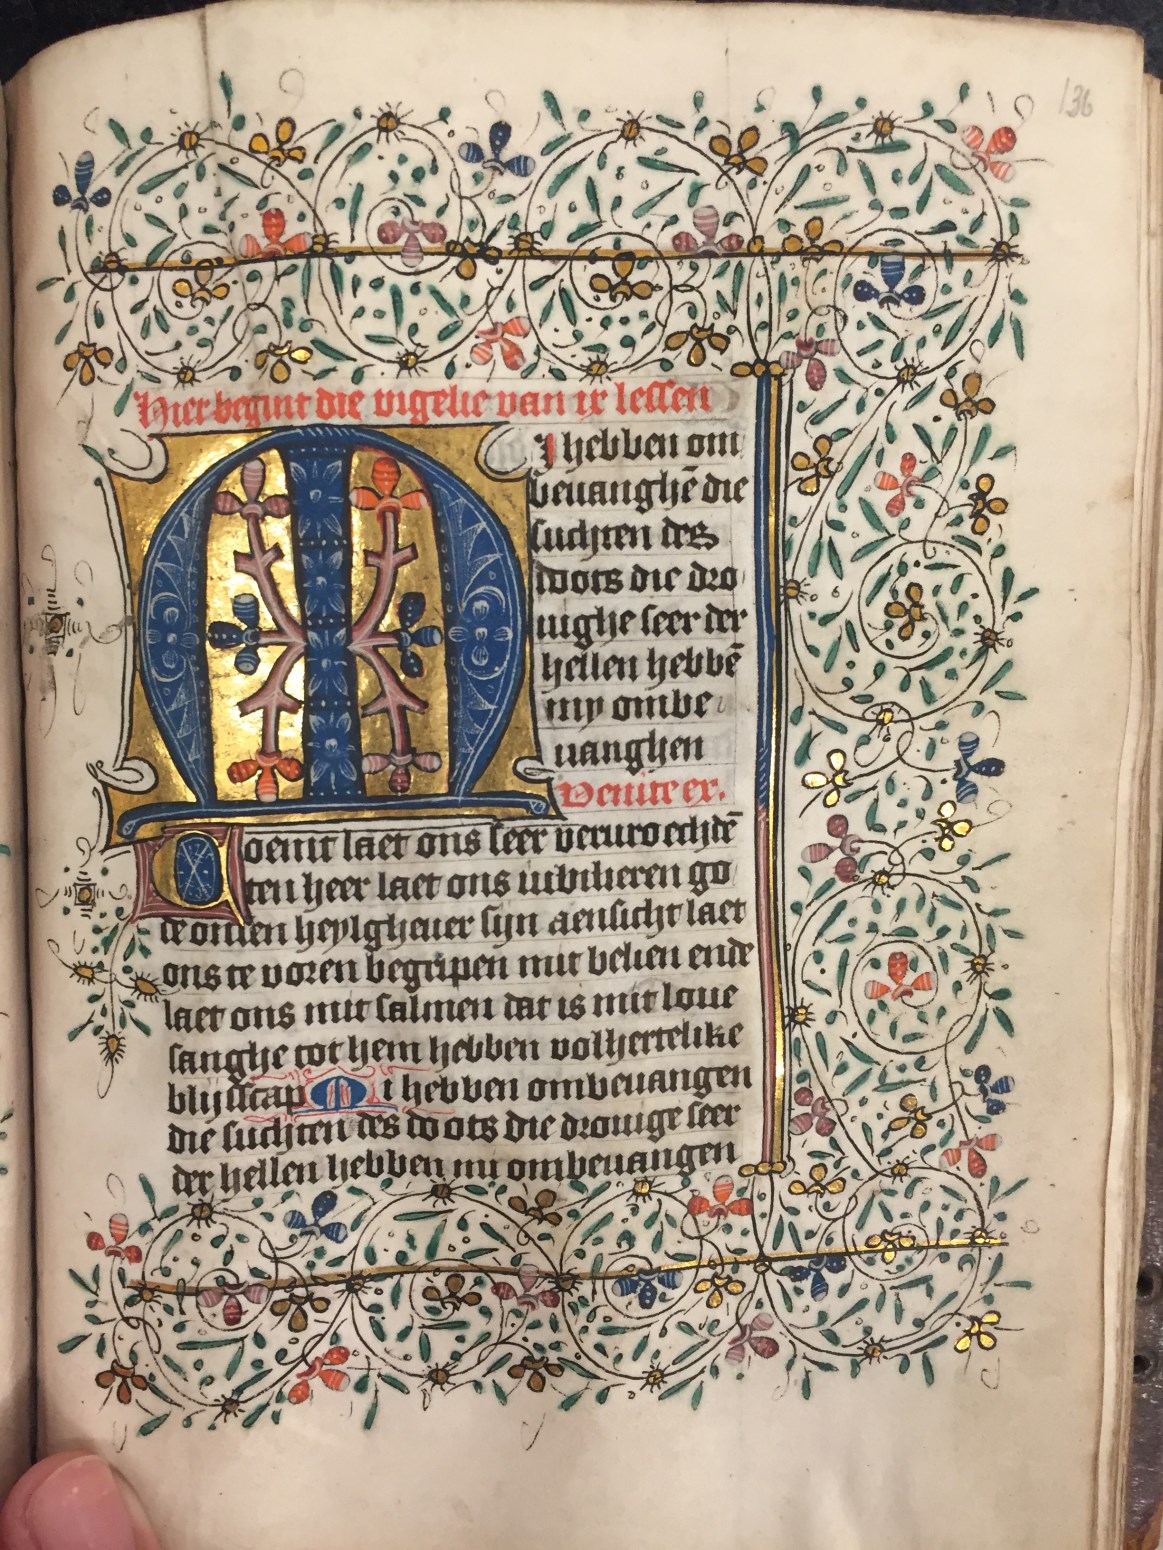 136
Hier begint die vigelie van ix lessen
MI hebben om
bevanghē die
suchten des
doots die dro
vighe seer der
hellen hebbē
my ombe
vanghen
Venite ex.
Coemt laet ons seer vervroechdē
ten heer laet ons iubileren go
de onsen heylghever sijn aensicht laet
ons te voren begripen mit belien ende
laet ons mit salmen dat is mit love
sanghe tot hem hebben volhertelike
blijscap Mi hebben ombevangen
die suchten des doots die drovige seer
der hellen hebben mi ombevangen